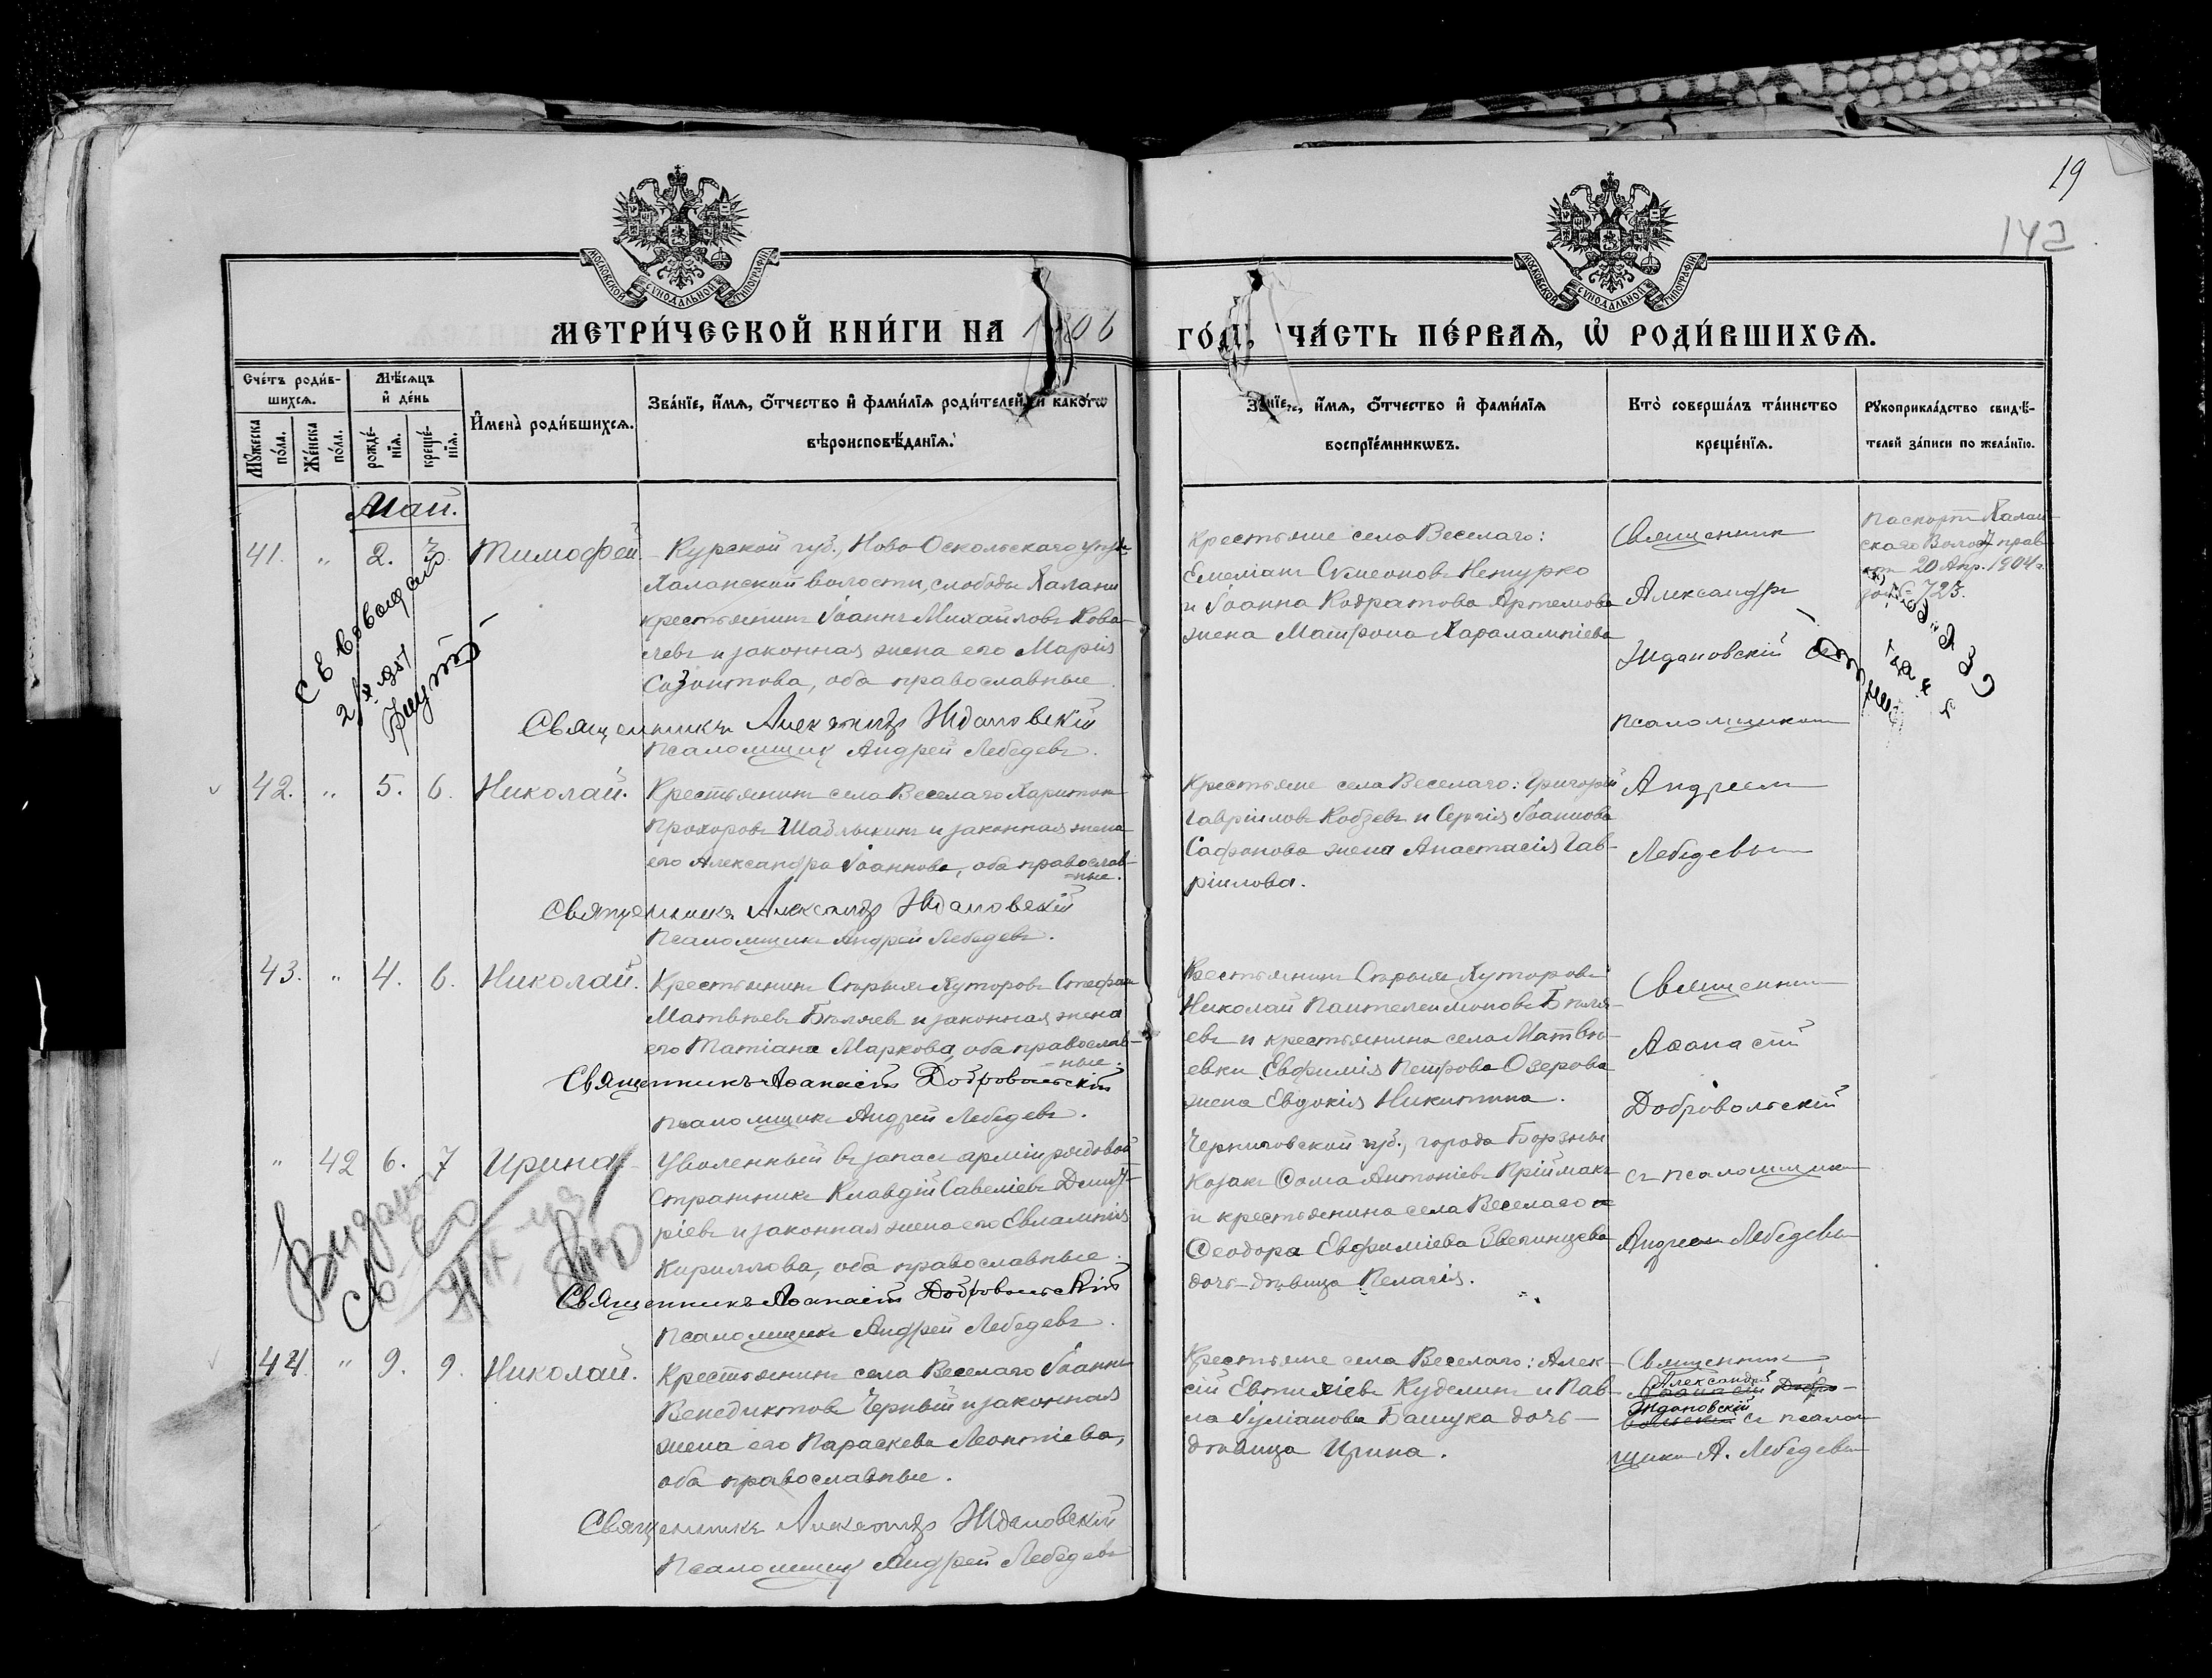 19
142
МОСКОВСКОЙ СѴНОДАЛЬНОЙ ТИПОГРАФІИ
МОСКОВСКОЙ СѴНОДАЛЬНОЙ ТИПОГРАФІИ
МЕТРИ́ЧЕСКОЙ КНИ́ГИ НА 1906
ГО́ДЪ, ЧА́СТЬ ПЕ́РВАѦ, Ѡ҆ РОДИ́ВШИХСѦ.
Сче́тъ роди́в-
шихсѧ.
Мѣ́сѧцъ
и҆ де́нь
Мꙋ́жеска по́ла.
Же́нска по́ла.
рожде́-
нїѧ.
креще́-
нїѧ.
И҆мена̀ роди́вшихсѧ.
Зва́нїе, и҆́мѧ, ѻ҆́тчество и҆ фами́лїѧ роди́телей, и҆ како́гѡ
вѣроисповѣ́данїѧ.
Зва́нїе, и҆́мѧ, ѻ҆́тчество и҆ фами́лїѧ
воспрїе́мникѡвъ.
Кто̀ соверша́лъ та́инство
креще́нїѧ.
Рꙋкоприкла́дство свидѣ́-
телей за́писи по жела́нїю.
Май.
41. " 2. 3. Тимофей
Курской губ., Ново-Оскольскаго уѣзда
Халанской волости, слободы Халани
крестьянинъ Іоаннъ Михайловъ Кова-
левъ и законная жена его Марія
Созонтова, оба православные.
Священникъ Александръ Ждановскій
Псаломщикъ Андрей Лебедевъ.
Крестьяне села Веселаго:
Емеліанъ Сѵмеоновъ Нетурко
и Іоанна Кодратова Артемова
жена Матрона Харалампіева
Священникъ
Александръ
Ждановскій
псаломщикомъ
Андреемъ
Лебедевымъ
Паспортъ Халан-
скаго Волост. прав.
отъ 20 Апр. 1904 г.
за № 725.
1951
42. " 5. 6. Николай.
Крестьянинъ села Веселаго Харитонъ
Прохоровъ Шаблыкинъ и законная жена
его Александра Іоаннова, оба православ-
=ные.
Священникъ Александръ Ждановскій
Псаломщикъ Андрей Лебедевъ.
Крестьяне села Веселаго: Григорій
Гавріиловъ Кобзевъ и Сергія Іоаннова
Сафонова жена Анастасія Гав-
ріилова.
43. " 4. 6. Николай.
Крестьянинъ Старыхъ Хуторовъ Стефанъ
Матвѣевъ Бѣляевъ и законная жена
его Татіана Маркова, оба православ-
=ные.
Священникъ Аѳанасій Добровольскій
Псаломщикъ Андрей Лебедевъ.
Крестьянинъ Старыхъ Хуторовъ
Николай Пантелеимоновъ Бѣля-
евъ и крестьянина села Матвѣ-
евки Евфимія Петрова Озерова
жена Евдокія Никитина.
Священникъ
Аѳанасій
Добровольскій
съ псаломщикомъ
Андреемъ Лебедевымъ
" 42 6. 7 Ирина
Уволенный въ запасъ арміи рядовой
Стражникъ Клавдій Савеліевъ Димит-
ріевъ и законная жена его Евлампія
Кириллова, оба православные.
Священникъ Аѳанасій Добровольскій
Псаломщикъ Андрей Лебедевъ.
Черниговской губ., города Борзны
козакъ Ѳома Антоніевъ Пріймакъ
и крестьянина села Веселаго
Ѳеодора Евфиміева Звегинцева
дочь-дѣвица Пелагія.
44. " 9. 9. Николай.
Крестьянинъ села Веселаго Іоаннъ
Венедиктовъ Черный и законная
жена его Параскева Леонтіева,
оба православные.
Священникъ Александръ Ждановскій
Псаломщикъ Андрей Лебедевъ
Крестьяне села Веселаго: Алек-
сій Евтихіевъ Куделинъ и Пав-
ла Іуліанова Башука дочь-
дѣвица Ирина.
Священникъ
Александръ
Аѳанасій Добро-
Ждановскій
вольскій съ псалом-
щикомъ А. Лебедевымъ